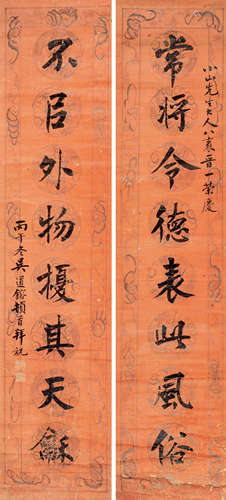 小山先生大人八袠晉一榮慶
常將令德表此風俗
不㠯外物擾其天龢
丙午冬吳道鎔頓首拜祝